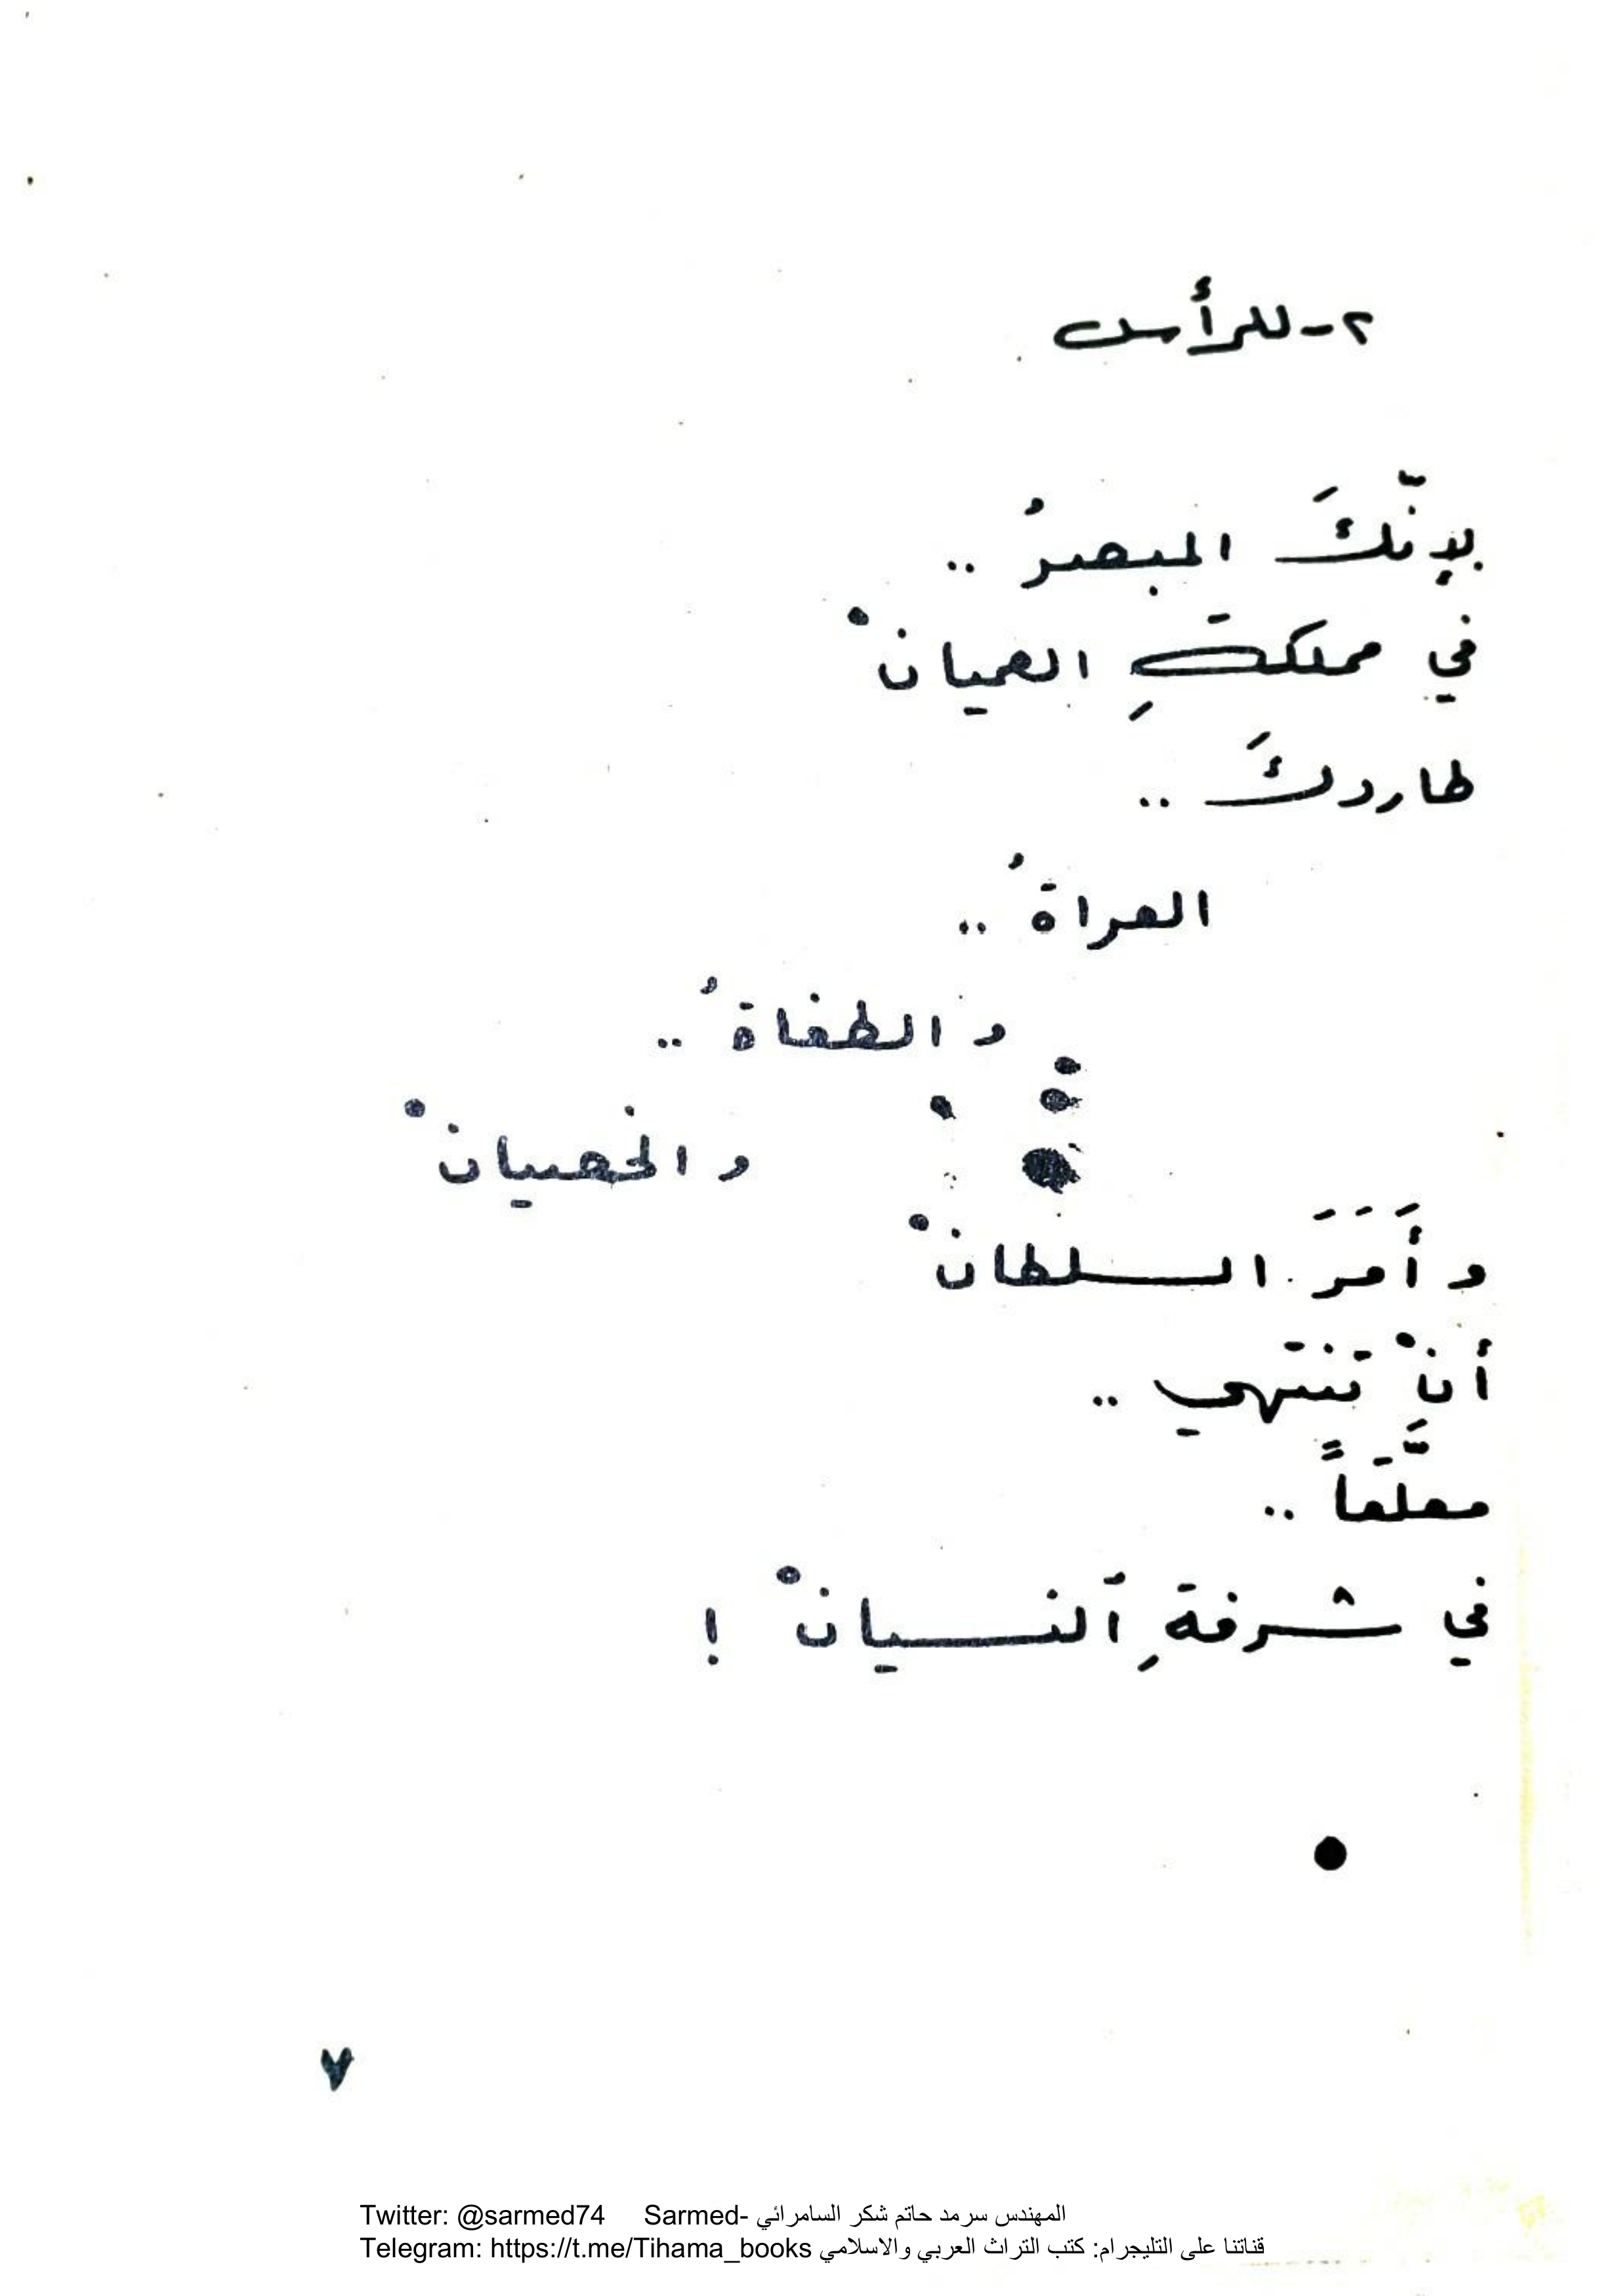 ٢- للرأس
لإنّكَ المبصرُ ..
في مملكةِ العميانْ
طاردكَ ..
العراةُ ..
والطغاةُ ..
والخصيانْ
وأَمَرَ السلطانْ
أنْ تنتهي ..
معلَّقاً ..
في شرفةِ ٱلنسيانْ !
٧
Twitter: @sarmed74 Sarmed- المهندس سرمد حاتم شكر السامرائي
Telegram: https://t.me/Tihama_books قناتنا على التليجرام: كتب التراث العربي والاسلامي